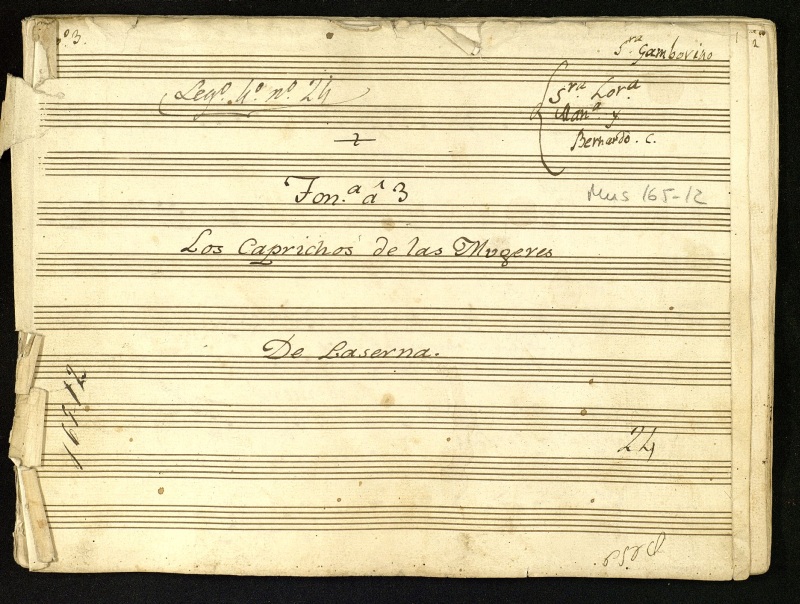 º 3.
Sra Gambovino
Legº 4º nº 24
Sra Lora
Mana y
Bernardo. C.
2
Ton.ª á 3
Mus 165-12
Los Caprichos de las Mugeres
De Laserna.
165-12
24
1
2